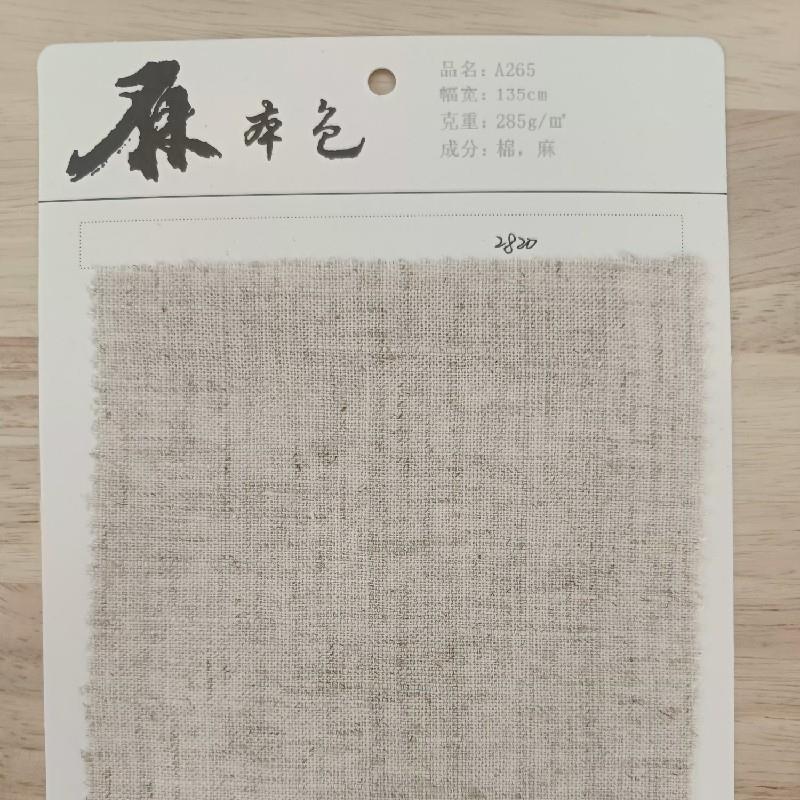 麻本色
品名：A265
幅宽：135cm
克重：285g/㎡
成分：棉，麻
2820